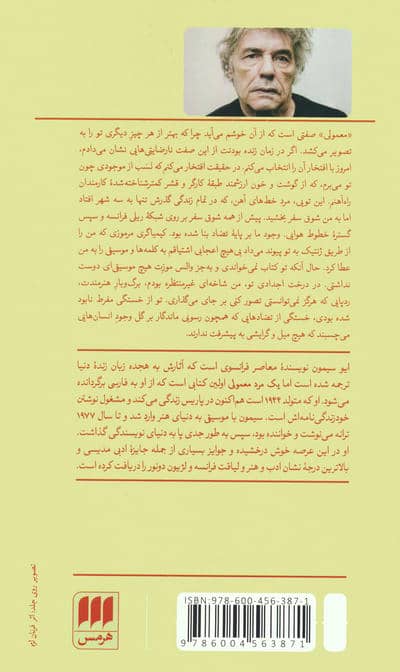 «معمولی» صفتی است که از آن خوشم می‌آید چرا که بهتر از هر چیزِ دیگری تو را به
تصویر می‌کشد. اگر در زمان زنده بودنت از این صفت نارضایتی‌هایی نشان می‌دادم،
امروز با افتخار آن را انتخاب می‌کنم. در حقیقت افتخار می‌کنم که نَسَب از موجودی چون
تو می‌برم، که از گوشت و خون ارزشمند طبقهٔ کارگر و قشر کمترشناخته‌شدهٔ کارمندان
راه‌آهنم. این تویی، مرد خط‌های آهن، که در تمام زندگی گذرش تنها به سه شهر افتاد
اما به من شوق سفر بخشید. پیش از همه شوق سفر بر روی شبکهٔ ریلی فرانسه و سپس
گسترهٔ خطوط هوایی. وجود ما بر پایهٔ تضاد بنا شده بود. کیمیاگری مرموزی که من را
از طریق ژنتیک به تو پیوند می‌داد بی‌هیچ اعجابی اشتیاقم به کلمه‌ها و موسیقی را به من
عطا کرد. حال آنکه تو کتاب نمی‌خواندی و به‌جز والس موزِت هیچ موسیقی‌ای دوست
نداشتی. در درخت اجدادی تو، من شاخه‌ای غیرمنتظره بودم، برگ‌وبارِ هنرمندت،
ردپایی که هرگز نمی‌توانستی تصور کنی بر جای می‌گذاری. تو از خستگی مفرط نابود
شده بودی، خستگی از تضادهایی که همچون رسوبی ماندگار بر گل وجود انسان‌هایی
می‌چسبند که هیچ میل و گرایشی به پیشرفت ندارند.
ایو سیمون نویسندهٔ معاصر فرانسوی است که آثارش به هجده زبان زندهٔ دنیا
ترجمه شده است اما یک مرد معمولی اولین کتابی است که از او به فارسی برگردانده
می‌شود. او که متولد ۱۹۴۴ است هم‌اکنون در پاریس زندگی می‌کند و مشغول نوشتن
خودزندگی‌نامه‌اش است. سیمون با موسیقی به دنیای هنر وارد شد و تا سال ۱۹۷۷
ترانه می‌نوشت و خواننده بود، سپس به طور جدی پا به دنیای نویسندگی گذاشت.
او در این عرصه خوش درخشیده و جوایز بسیاری از جمله جایزهٔ ادبی مدیسی و
بالاترین درجهٔ نشان ادب و هنر و لیاقت فرانسه و لژیون دونور را دریافت کرده است.
تصویر روی جلد: اثر
هرمس
ISBN: 978-600-456-387-1
9 786004 563871